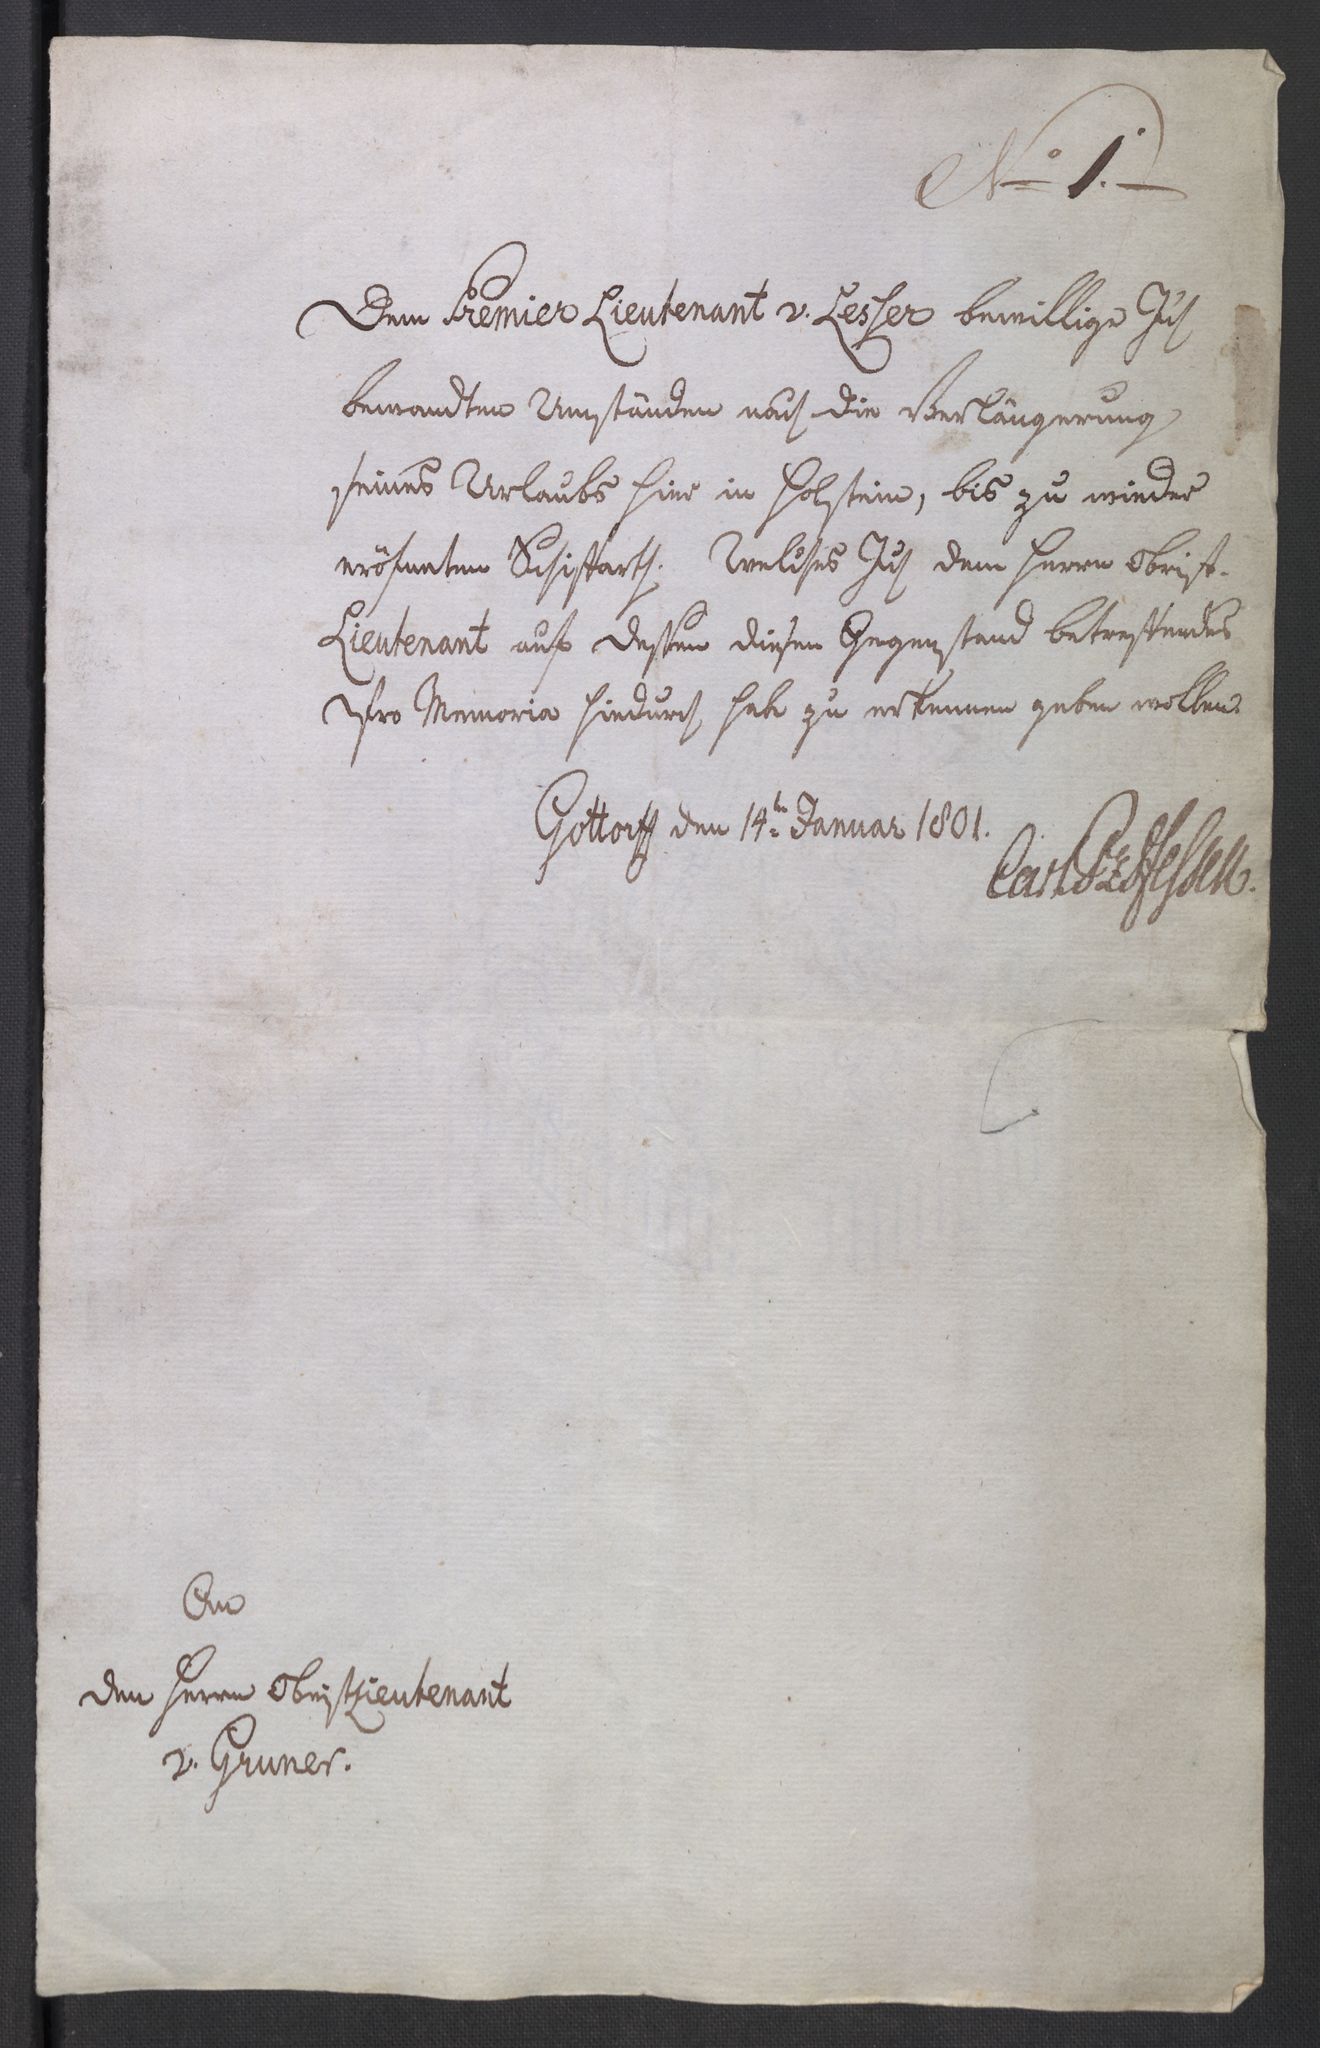 No 1.
Dem Premier Lieutenant v. Lesser bewillige Ich
bewandten Umständen nach die Verlängerung
seines Urlaubs hier in Holstein, bis zu wieder
eröfneten Schiffarth. Welches Ich dem Herrn Obrist-
Lieutenant auf dessen diesen Gegenstand betreffendes
Pro Memoria hiedurch habe zu erkennen geben wollen.
Gottorff den 14ten Januar 1801.
Carl Pz Hessen.
An
den Herrn ObristLieutenant
v. Gruner.